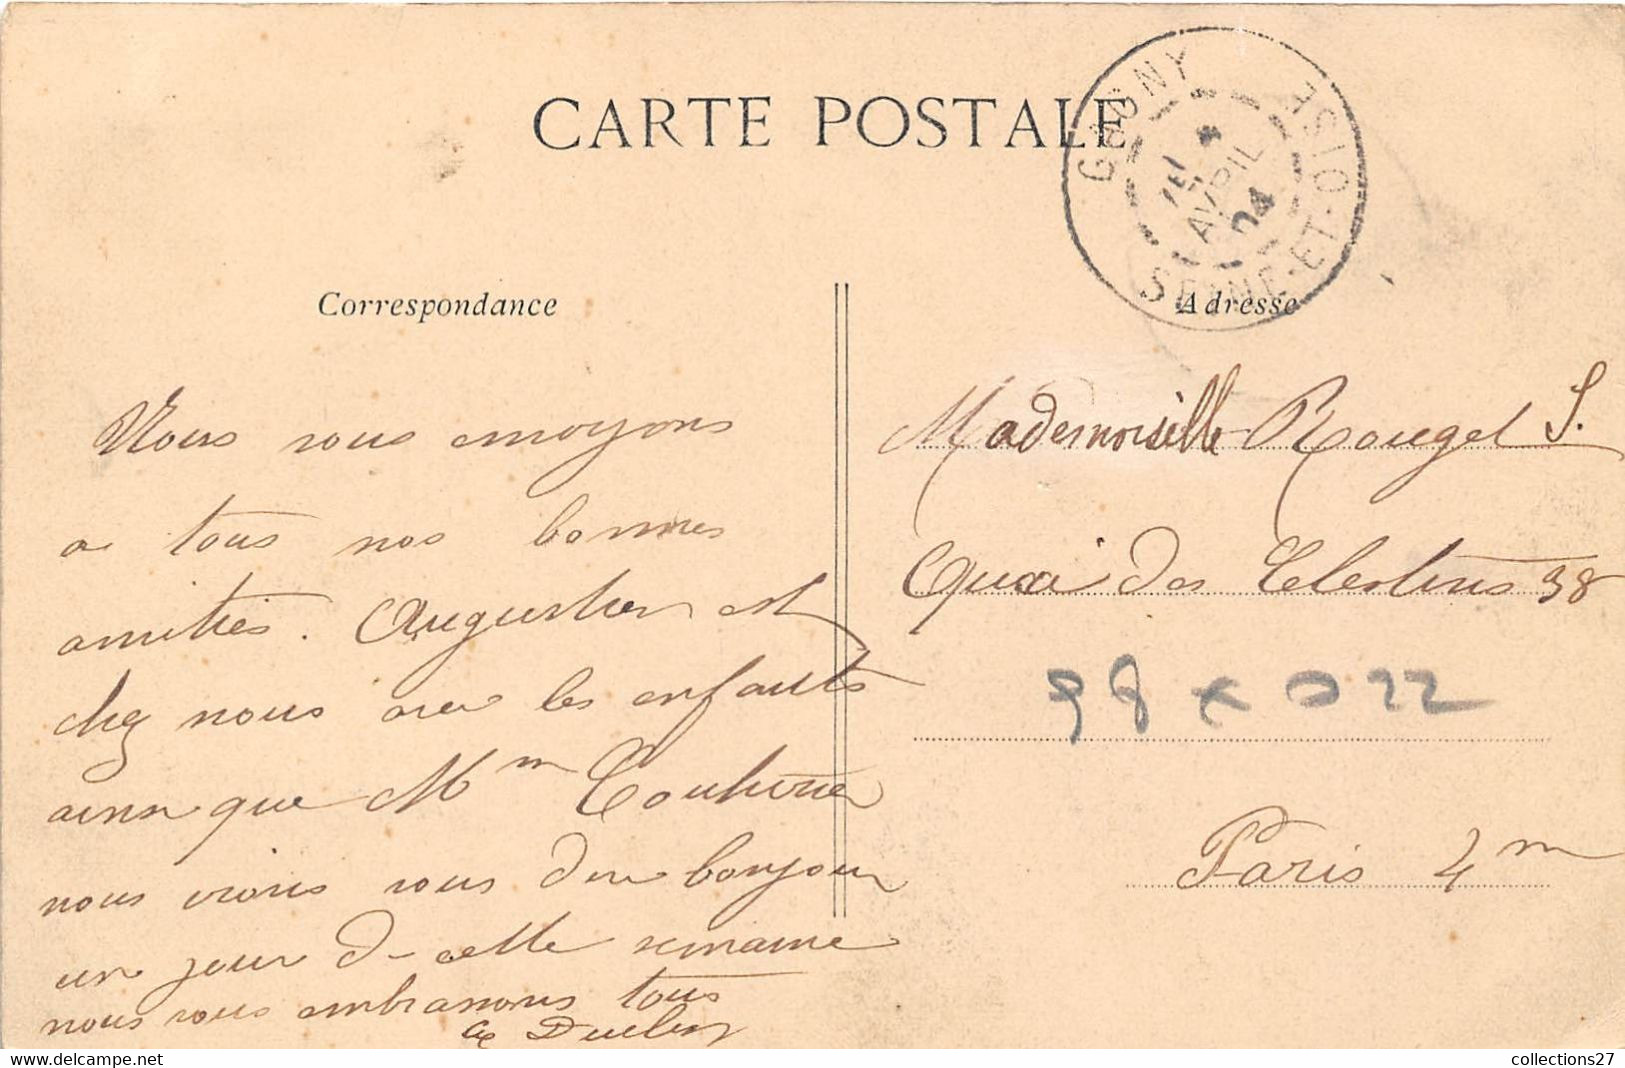 CARTE POSTALE
GAGNY
AVRIL
04
SEINE-ET-OISE
Correspondance
Adresse
Nous vous envoyons
a tous nos bonnes
amitiés. Augustien est
chez nous avec les enfants
ainsi que Mm
nous irons vous dire bonjour
un jour de cette semaine
nous vous embrassons tous
Mademoiselle Rouget S.
Quai des Celestins 38
98 x 022
Paris 4m
collections27